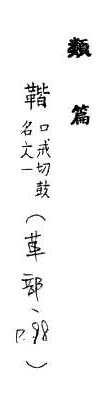 類篇
口戒切鼓
名文一
(革部、P.98)